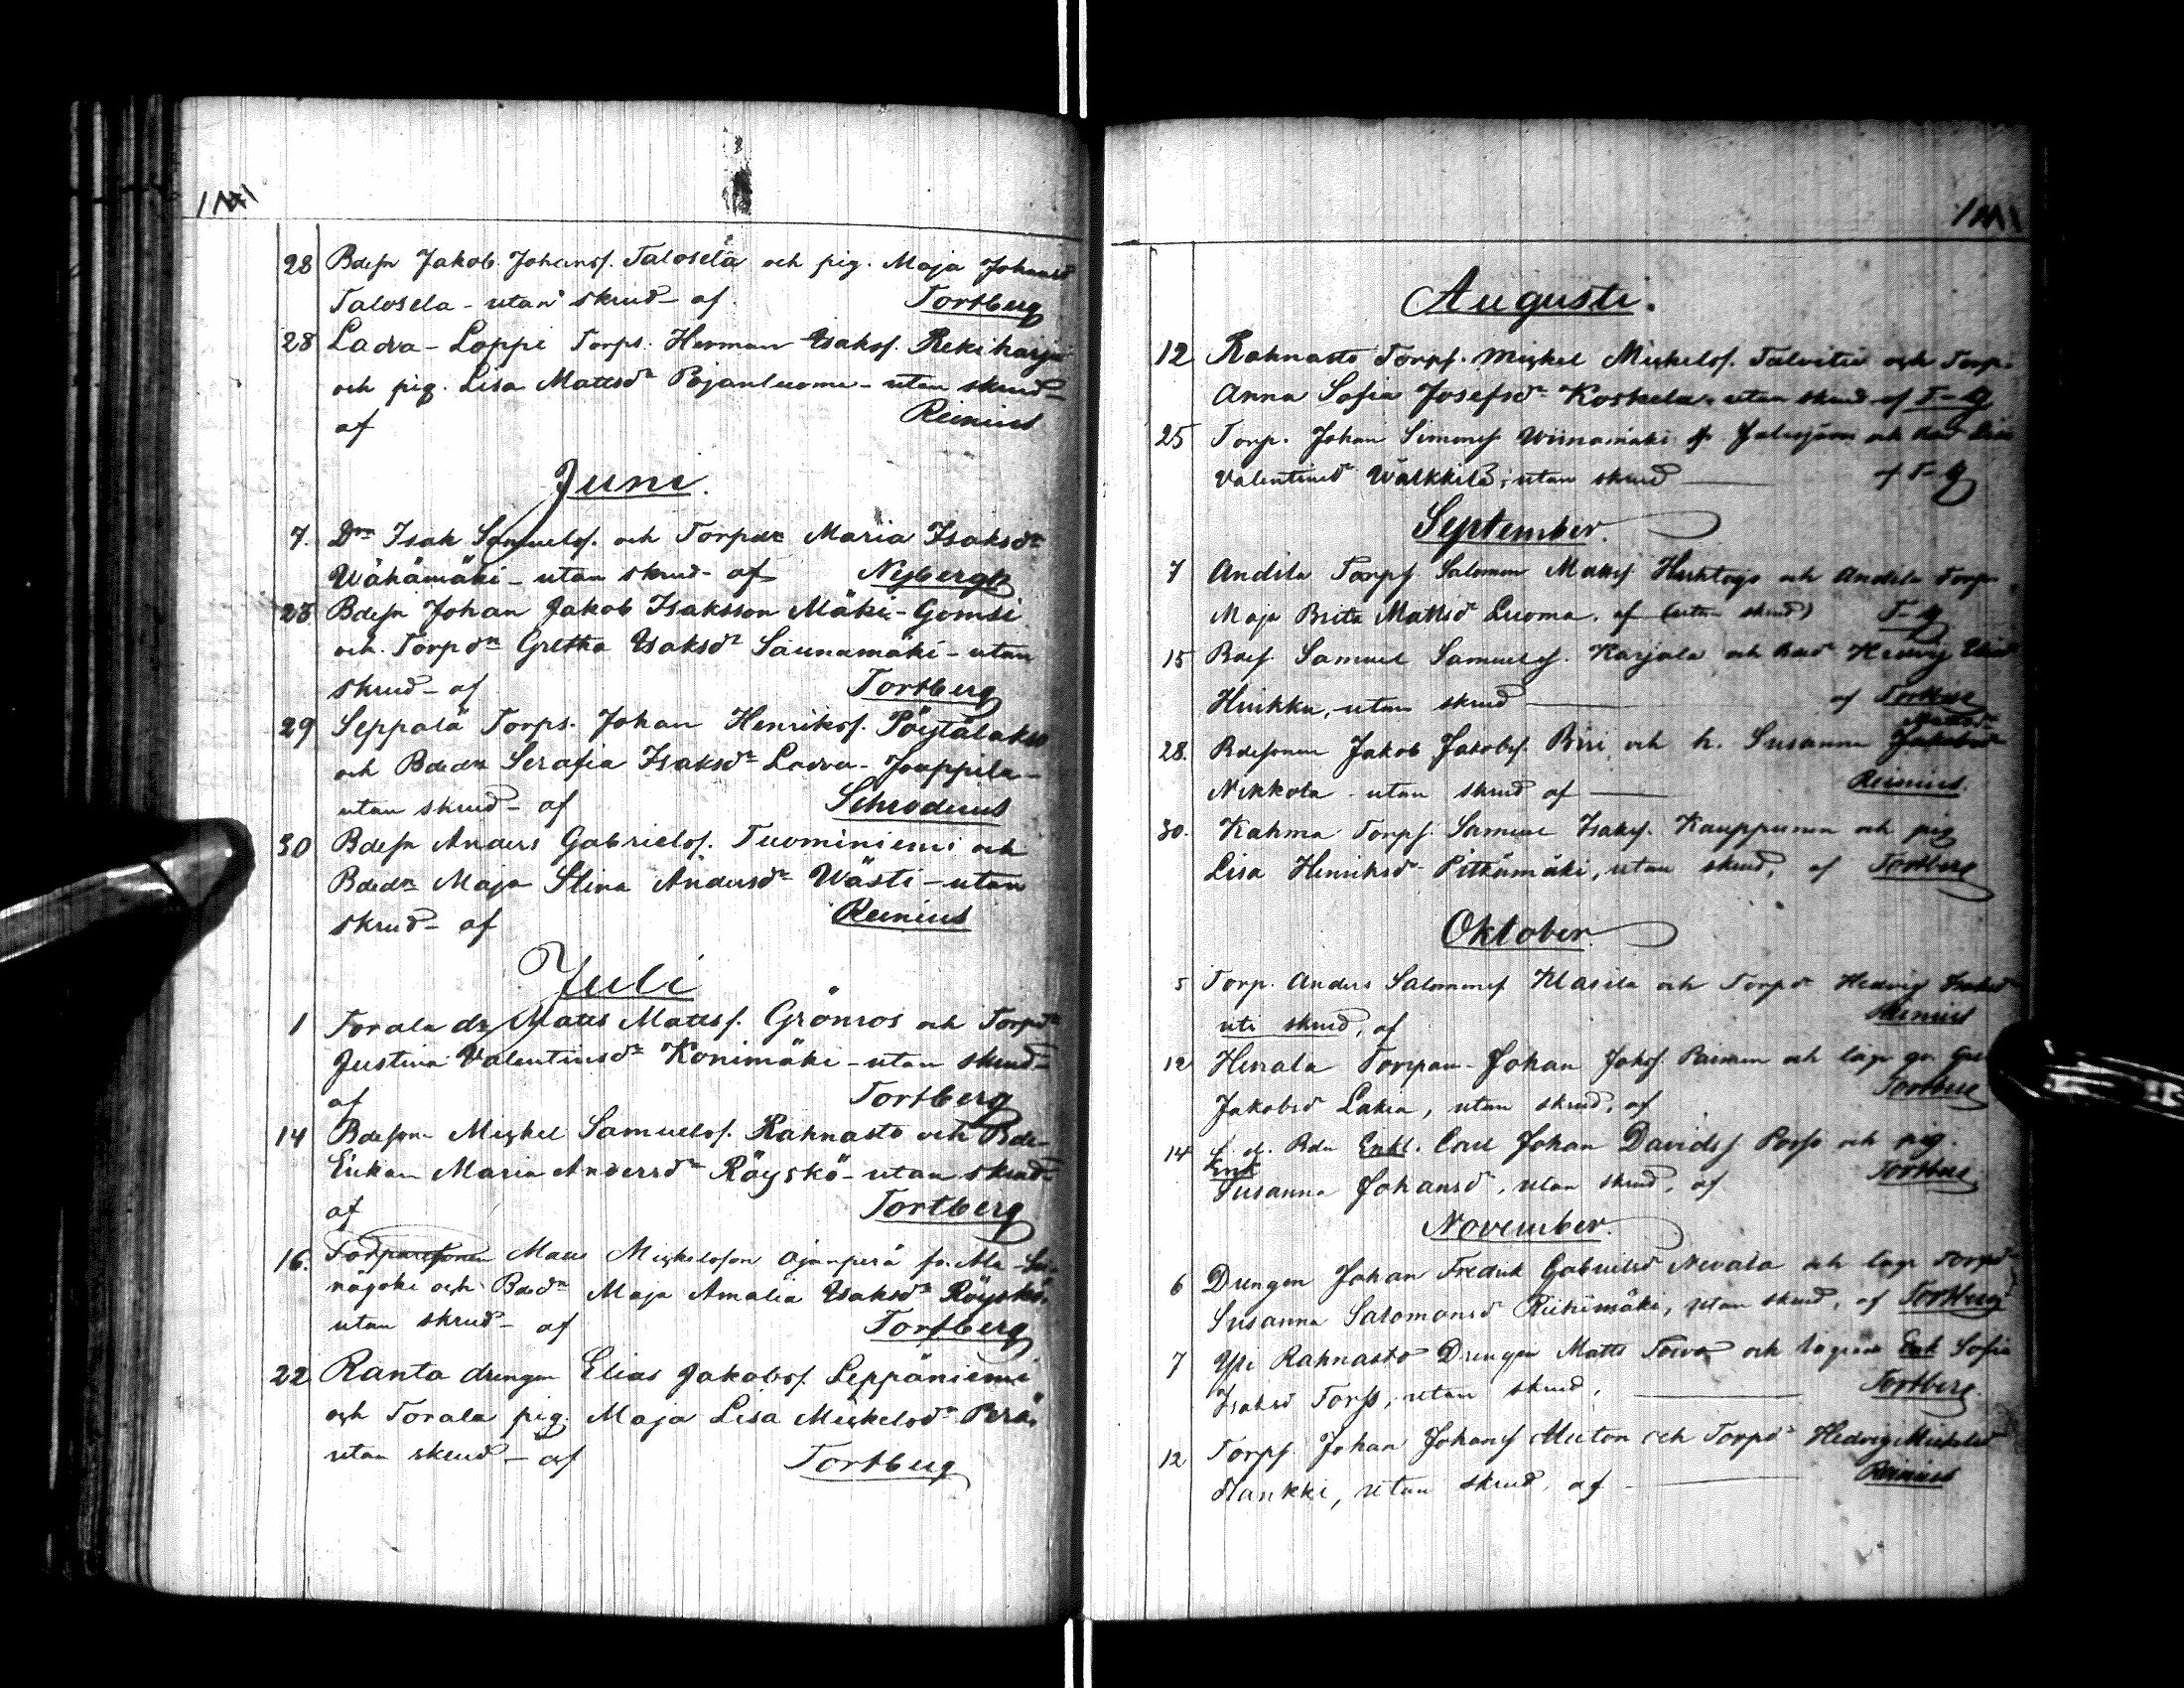 28 Bdesn Jakob Johans. Talosela och pig. Maja Johansd
Talosela - utan skrud - af Tortberg
28 Ladva-Loppi Torps. Herman Isaks. Rekiharju
och pig. Lisa Mattsdr Pojanluoma - utan skrud -
af Reinius
Juni.
7. Drn Isak Samuels. och Torpdr Maria Isaksdr
Wähämäki - utan skrud - af Nyberg
23 Bdesn Johan Jakob Isaksson Mäki-Gomsi
och Torpdn Gretha Isaksdr Saunamäki - utan
skrud - af Tortberg
29 Seppälä Torps. Johan Henriks. Pöytälakso
och Bdedn Serafia Isaksdr Ladva-Jouppila -
utan skrud - af Schroderus
30 Bdesn Anders Gabriels. Tuominiemi och
Bdedn Maja Stina Andersdr Wästi - utan
skrud - af Reinius
Juli
1 Torala dr Matts Mattss. Grönros och Torpdr
Justina Valentinsdr Konimäki - utan skrud -
af Tortberg
14 Bdeson Mickel Samuels. Rahnasto och Bde-
Enkan Maria Andersdr Röyskö - utan skrud -
af Tortberg
16. Torparesonen Matts Mickelsson Ojanperä fr. Ala-
och Bdedr Maja Amalia Isaksdr Röyskö.
utan skrud - af Tortberg
22 Ranta drengen Elias Jakobs. Leppäniemi
och Torala pig. Maja Lisa Mickelsdr Perä.
utan skrud - af Tortberg
Augusti.
12 Rahnasto Torps. Mickel Mickels. Talvitie och Torp.
Anna Sofia Josefsdr Koskela, utan skrud af T-g
25 Torp. Johan Simons. Wiinamäki fr Jalasjärvi och
Valentinsd Wälkkilä, utan skrud af T-g
September.
7 Andila Torps. Salomon Matts. och Andila Torp.
Maja Brita Mattsd Luoma, af (utan skrud) T-g
15 Bdes. Samuel Samuels. Karjala och Bded Hedvig
Huikku, utan skrud af Tortberg
28. Bdesonen Jakob Jakobs. Piri och h. Susanna Jakobsdr Mattsdr
Nikkola - utan skrud af Reinius.
30. Kahma Torps. Samuel Isaks. Kauppinen och pig
Lisa Henriksdr Pitkämäki, utan skrud, af Tortberg
Oktober
5 Torp. Anders Salomons. Klasila och Torpdr Hedvig Isaksdr
uti skrud, af Reinius
12 Torpare Johan Jakos. och
Jakobsd Lakia, utan skrud, af Tortberg
14 Enkl. Carl Johan Davids. Porss och pig.
Susanna Johansd, utan skrud, af Tortberg
November.
6 Drengen Johan Fredrik Gabriels Nevala och Torpdr
Susanna Salomonsd Riihimäki, utan skrud, af Tortberg
7 Ypi Rahnasto Drengen Matts och Sofia
Isaksd Torss, utan skrud, Tortberg.
12 Torps. Johan Johans. Meeton och Torpd Hedvig Mickelsd
Hankki, utan skrud, af Reinius